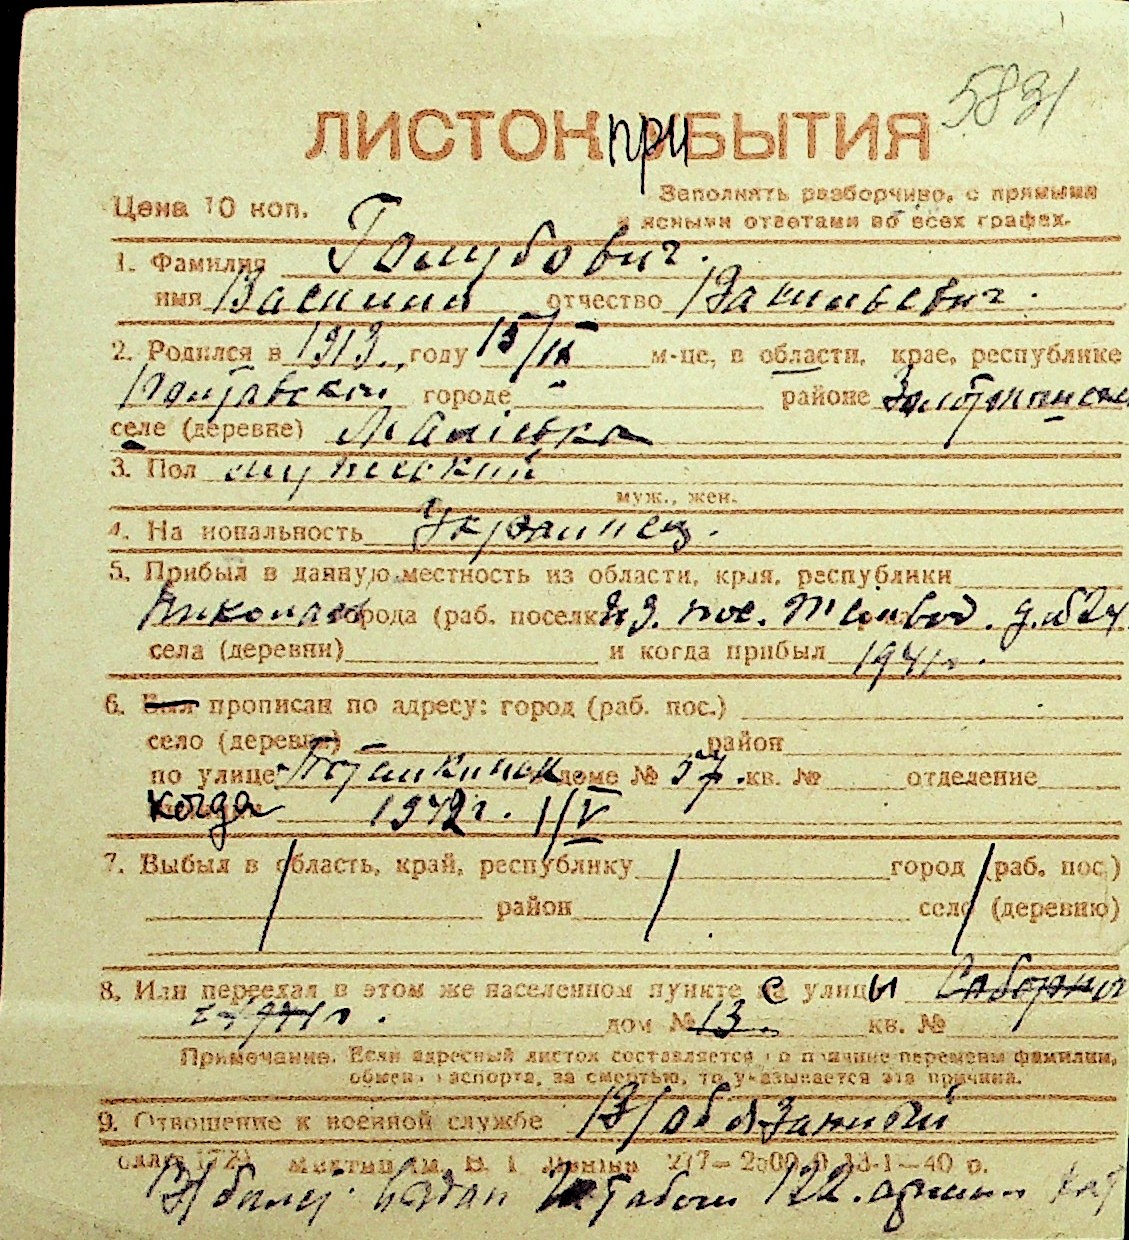 5831
ЛИСТОК ПРИБЫТИЯ
Цена 10 коп.
Заполнять разборчиво, с прямыми
и ясными ответами во всех графах.
1. Фамилия Голубович.
имя Василий отчество Васильевич.
2. Родился в 1913 году 15/IX м-це, в области, крае, республике
Полтавской городе " районе
селе (деревне)
3. Пол мужской
муж., жен.
4. Национальность Украинец.
5. Прибыл в данную местность из области, края, республики
Николаев города (раб. поселка пос. д. №24
села (деревни) и когда прибыл 1941 г.
6. Был прописан по адресу: город (раб. пос.)
село (деревня) район
по улице Потемкинск. доме № 57. кв. № отделение
когда 1942 г. 1/V
7. Выбыл в область, край, республику город (раб. пос.)
район село (деревню)
8. Или переехал в этом же населенном пункте с улицы Соборной
с 1941 г. дом № 13. кв. №
Примечание. Если адресный листок составляется по причине перемены фамилии,
обмена паспорта, за смертью, то указывается эта причина.
9. Отношение к военной службе В/обязанный
В/билет выдан Штабом 122. армии